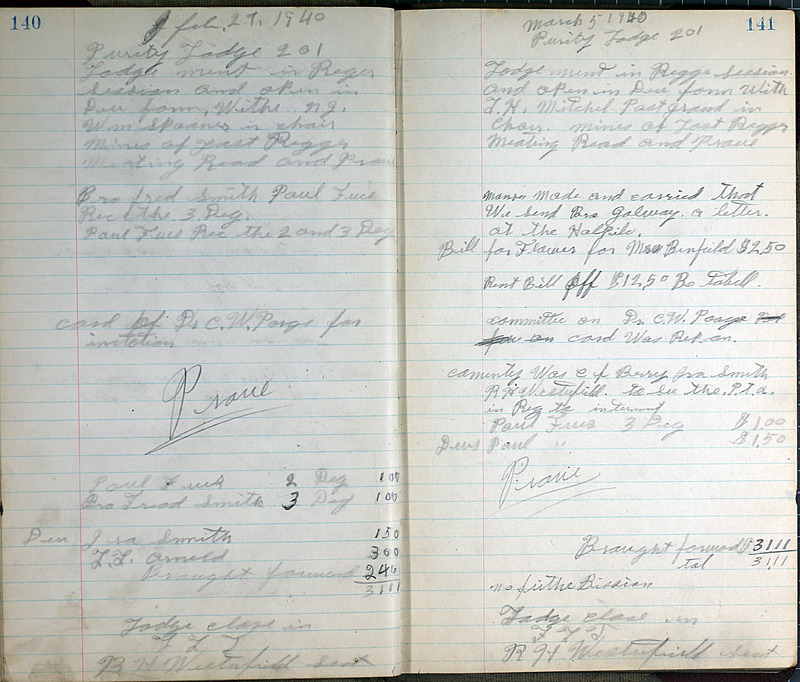 140
Feb, 27. 1940
Purity Lodge 201
Lodge ment in Reger
session and open in
Deu form, Withe N.g.
Wm Spooner in chair
mines of Last Regger
Meating Read and Prove
Bro fred Smith Paul Fues
Rec the 3 Deg.
Paul Fues Rec the 2 and 3 Deg
card of Dr C.W. Poage for
initation
Prove
Paul Fues 2 Deg 100
Bro Fread Smith 3 Deg 100
Deu Ira Smith 150
L.L. Arnold 300
Braught forward 246
3111
Lodge close in
F L T
R H Westerfield Sect
141
March 5 1940
Purity Lodge 201
Lodge ment in Regge session
and open in Deu form With
T.H. Mitchel Past grand in
Chair. mines of Last Regger
Meating Read and Prove
Made and carried that
We send Bro Galway. a letter.
at the
Bill for Flower for Mrs Benfield $2.50
Rent Bill off $12.50 Be Tabell.
committee on Dr. C.W. Poage
on card Was Rep on.
Was C.F. Berry Ira Smith
R H Westerfield. to see the P.T.a.
in Reg to
Paul Fues 3 Deg $1.00
Deus Paul " $1.50
Prove
Braught forward $3111
tal 3111
no futhe Bissian
Lodge close in
F L T
R H Westerfield Sect